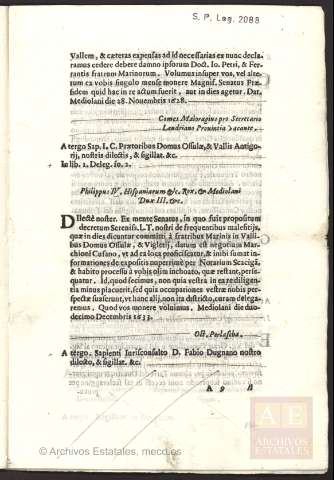 S. P. Leg. 2088
Vallem, & cæteras expensas ad id necessarias ex nunc decla-
ramus cedere debere damno ipsorum Doct. Io. Petri, & Fer-
rantis fratrum Marinorum. Volumus insuper vos, vel alte-
rum ex vobis singulo mense monere Magnif. Senatus Præ-
sidem quid hac in re actum fuerit, aut in dies agetur. Dat.
Mediolani die 28. Novembris 1628.
Comes Maioragius pro Secretario
Landriano Provincia vacante.
A tergo Sap. I. C. Prætoribus Domus Ossulæ, & Vallis Antigo-
rij, nostris dilectis, & sigillat. &c.
In lib. 2. Deleg. fo. 2.
Philippus IV. Hispaniarum &c. Rex, & Mediolani
Dux III. &c.
Dilecte noster. Ex mente Senatus, in quo fuit propositum
decretum Sereniss. I. T. nostri de frequentibus maleficijs,
quæ in dies dicuntur committi à fratribus Marinis in Valli-
bus Domus Ossulæ, & Vigletij, datum est negotium Mar-
chioni Cusano, vt ad ea loca proficiscatur, & inibi sumat in-
formationes de expositis
& habito processu à vobis olim inchoato, quæ restant, perse-
quatur. Id, quod fecimus, non quia vestra in ea re diligen-
tia minus placuerit, sed quia occupationes vestræ nobis per-
spectæ suaserunt, vt hanc alij, non ita districto, curam delega-
remus. Quod vos monere volumus. Mediolani die duo-
decimo Decembris 1633.
A tergo. Sapienti Iurisconsulto D. Fabio Dugnano nostro
dilecto, & sigillat. &c.
© Archivos Estatales, mecd.es
AE
ARCHIVOS
ESTATALES